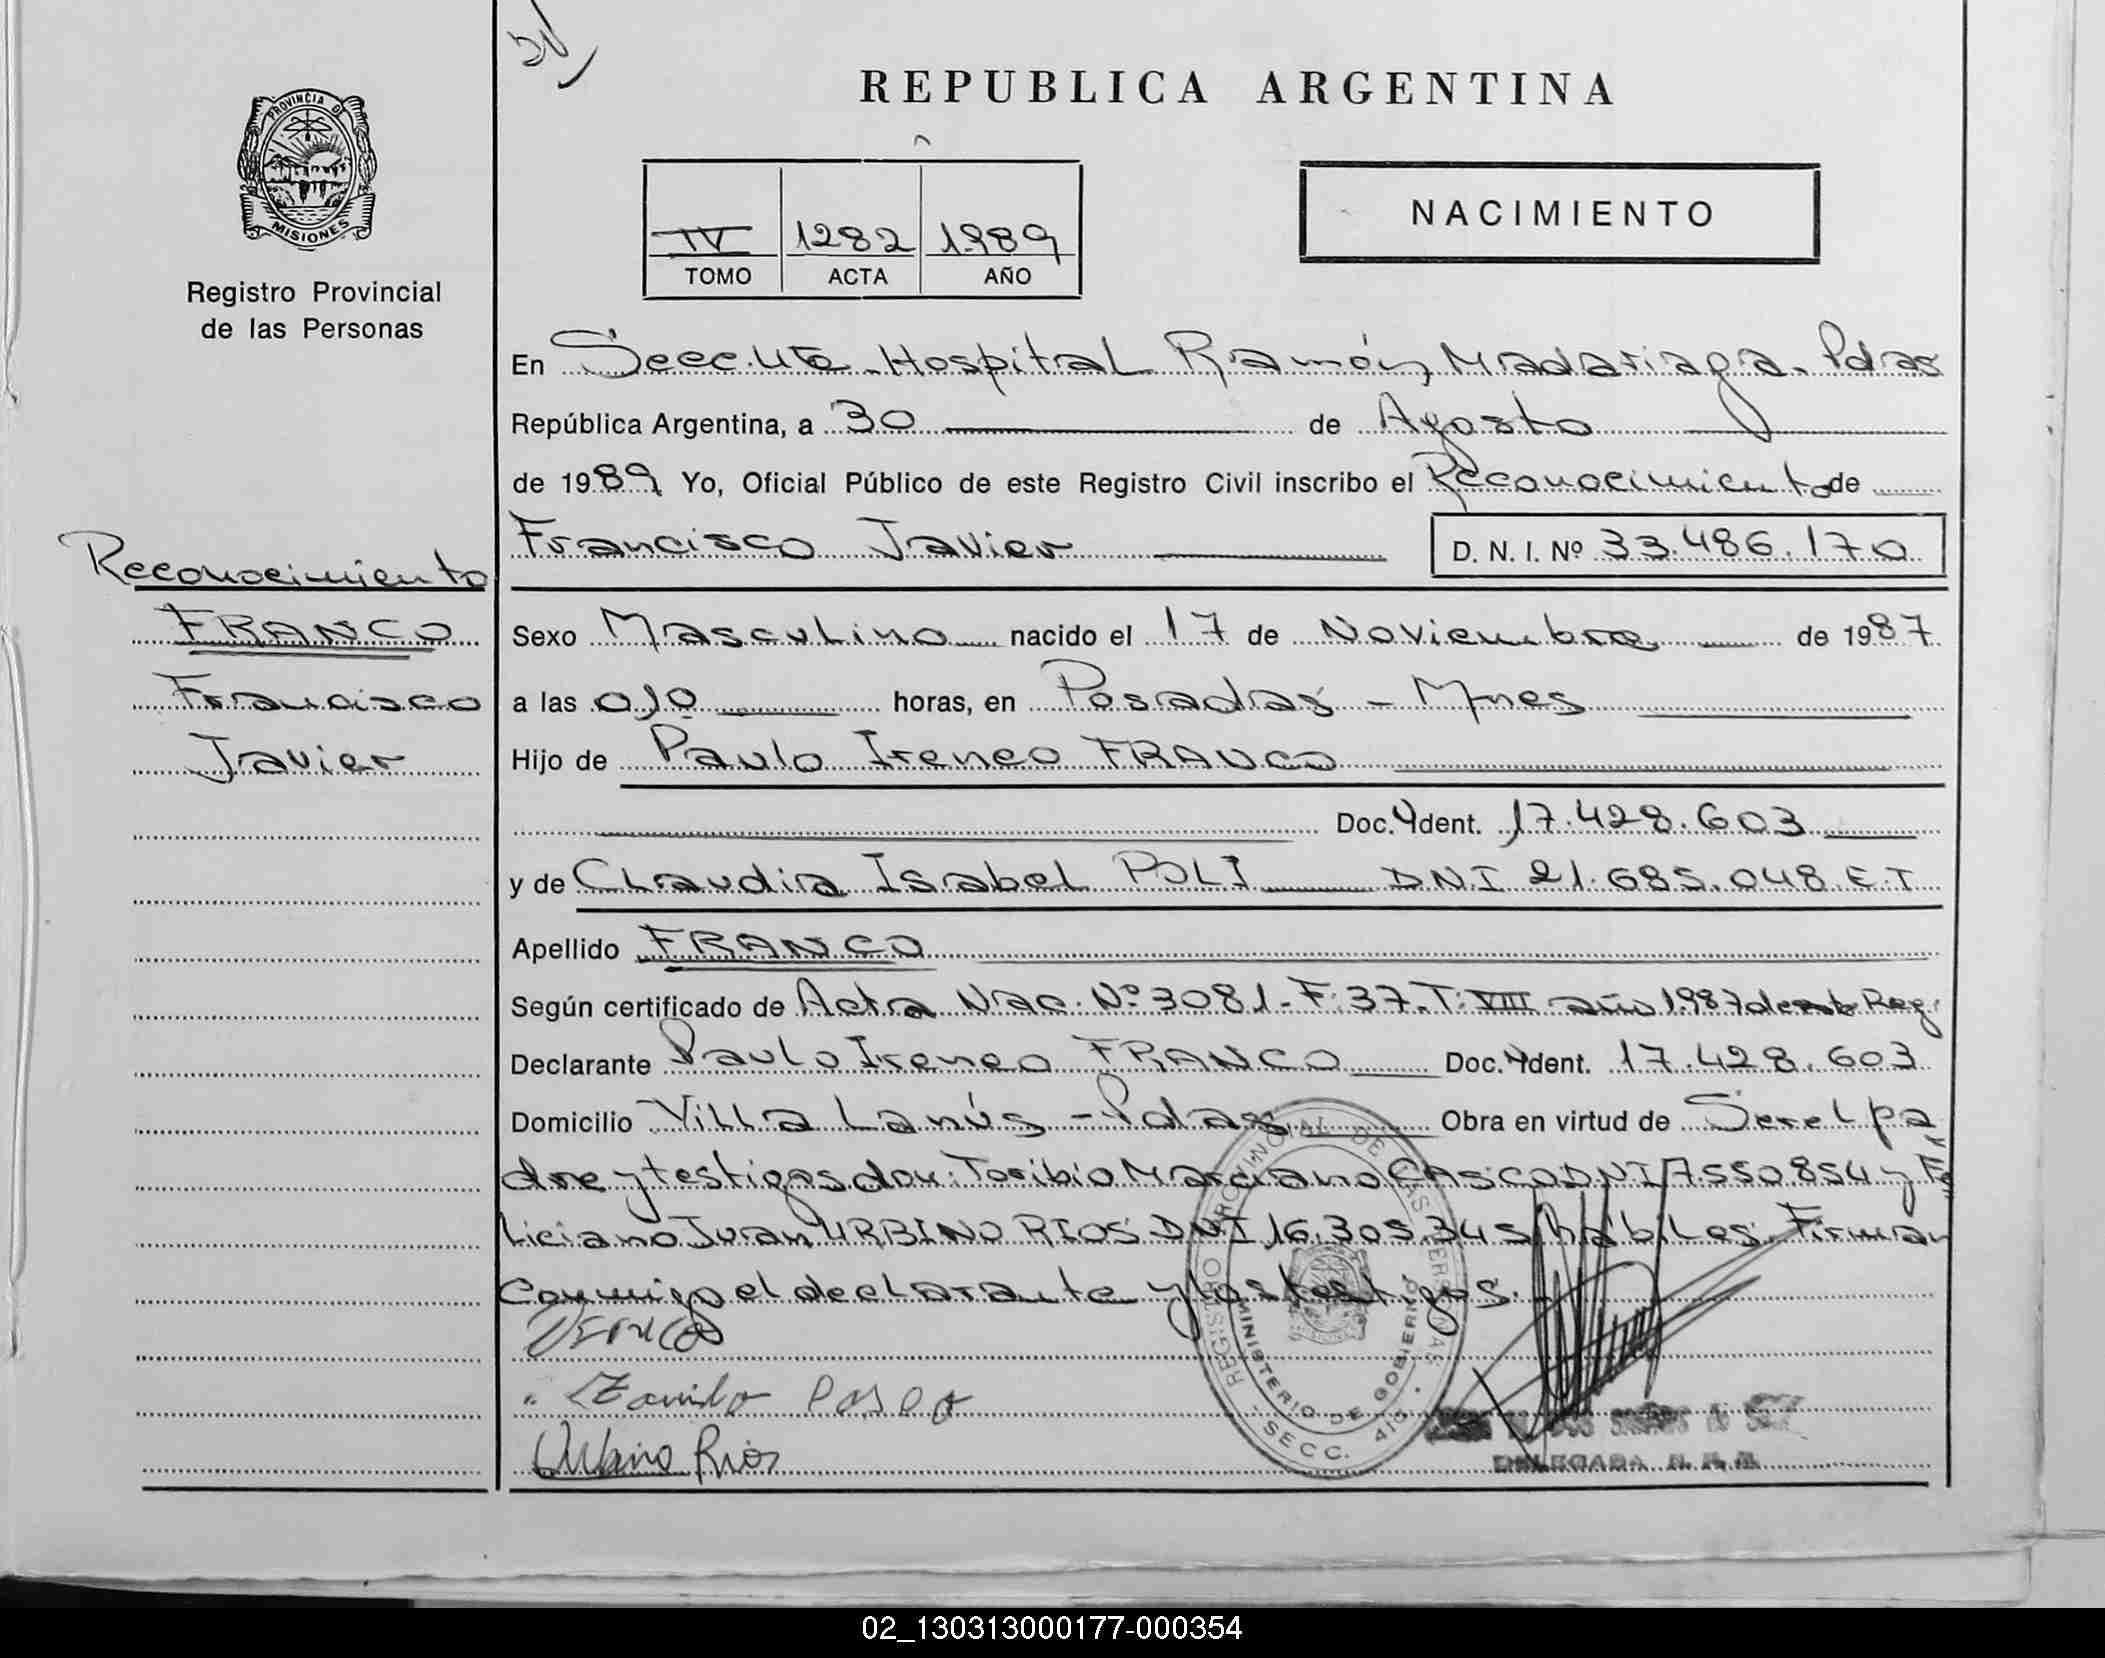 REPUBLICA ARGENTINA
PROVINCIA DE
MISIONES
Registro Provincial
de las Personas
IV 1282 1989
TOMO ACTA AÑO
NACIMIENTO
En Secc. 4ta - Hospital Ramón Madariaga. Pdas
República Argentina, a 30 de Agosto
de 1989 Yo, Oficial Público de este Registro Civil inscribo el Reconocimiento de
Francisco Javier D. N. I. Nº 33.486.170
Reconocimiento
FRANCO
Francisco
Javier
Sexo Masculino nacido el 17 de Noviembre de 1987
a las 0,10 horas, en Posadas - Mnes
Hijo de Paulo Ireneo FRANCO
Doc. Ident. 17.428.603
y de Claudia Isabel POLI DNI 21.685.048 E.T
Apellido FRANCO
Según certificado de Acta Nac. Nº 3081 - F: 37. T: VIII año 1987 de este Reg.
Declarante Paulo Ireneo FRANCO Doc. Ident. 17.428.603
Domicilio Villa Lanús - Pdas Obra en virtud de Ser el pa
dre y testigos don: Toribio Marciano CASCO DNI 7.550.854 y Fe
liciano Juan URBINO RIOS DNI 16.305.345 hábiles. Firman
Conmigo el declarante y los testigos.
Urbino Rios
REGISTRO PROVINCIAL DE LAS PERSONAS
MINISTERIO DE GOBIERNO
SECC. 4ta
DELEGADA
02_130313000177-000354